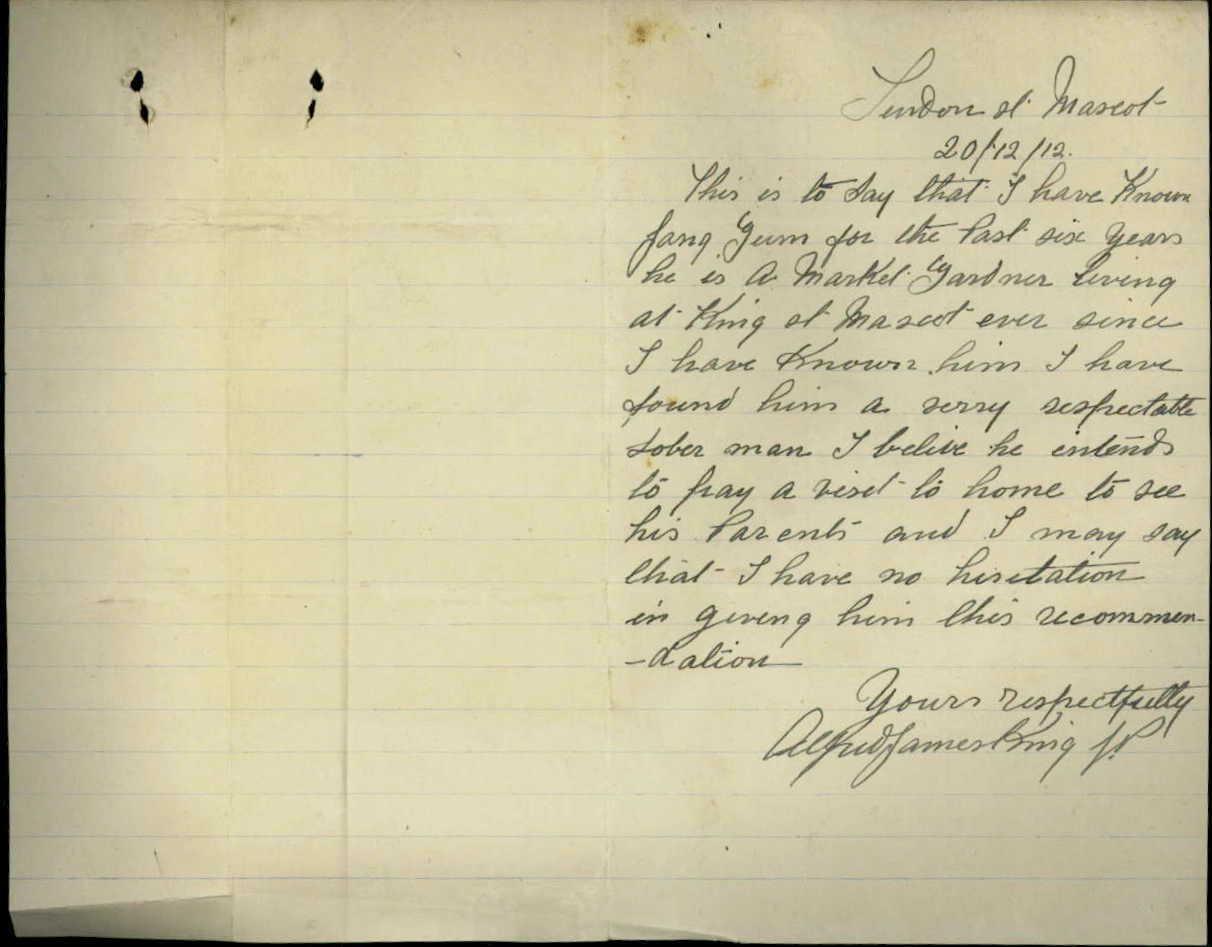 Lindon st Mascot
20/12/12.
This is to say that I have Known
fang Gum for the Past six years
he is A Market Gardner Living
at King st Mascot ever since
I have Known him I have
found him a verry respectable
sober man I belive he intends
to pay a viset to home to see
his Parents and I may say
that I have no hisetation
in giveng him this recommen-
-dation
Yours respectfully
Alfred James King JP